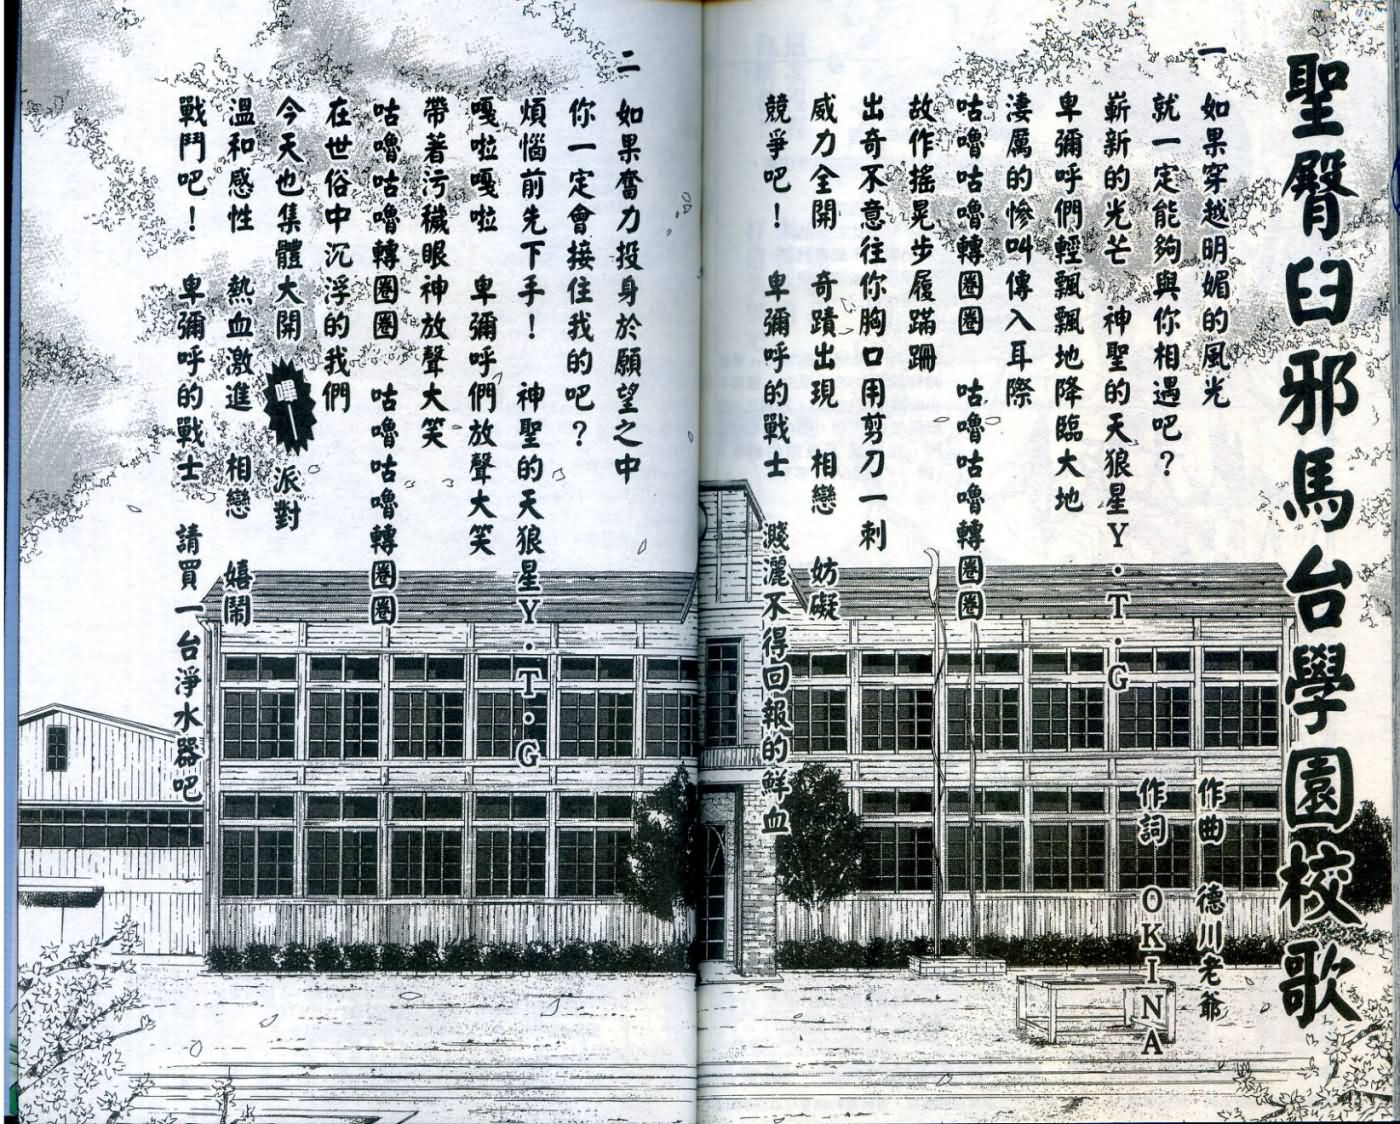 聖臀臼邪馬台學園校歌
作曲 德川老爺
作詞 OKINA
一
如果穿越明媚的風光
就一定能夠與你相遇吧？
嶄新的光芒 神聖的天狼星Y·T·G
卑彌呼們輕飄飄地降臨大地
淒厲的慘叫傳入耳際
咕嚕咕嚕轉圈圈 咕嚕咕嚕轉圈圈
故作搖晃步履蹣跚
出奇不意往你胸口用剪刀一刺
威力全開 奇蹟出現 相戀 妨礙
競爭吧！ 卑彌呼的戰士 濺灑不得回報的鮮血
二
如果奮力投身於願望之中
你一定會接住我的吧？
煩惱前先下手！ 神聖的天狼星Y·T·G
嘎啦嘎啦 卑彌呼們放聲大笑
帶著污穢眼神放聲大笑
咕嚕咕嚕轉圈圈 咕嚕咕嚕轉圈圈
在世俗中沉浮的我們
今天也集體大開嗶—派對
溫和感性 熱血激進 相戀 嬉鬧
戰鬥吧！ 卑彌呼的戰士 請買一台淨水器吧